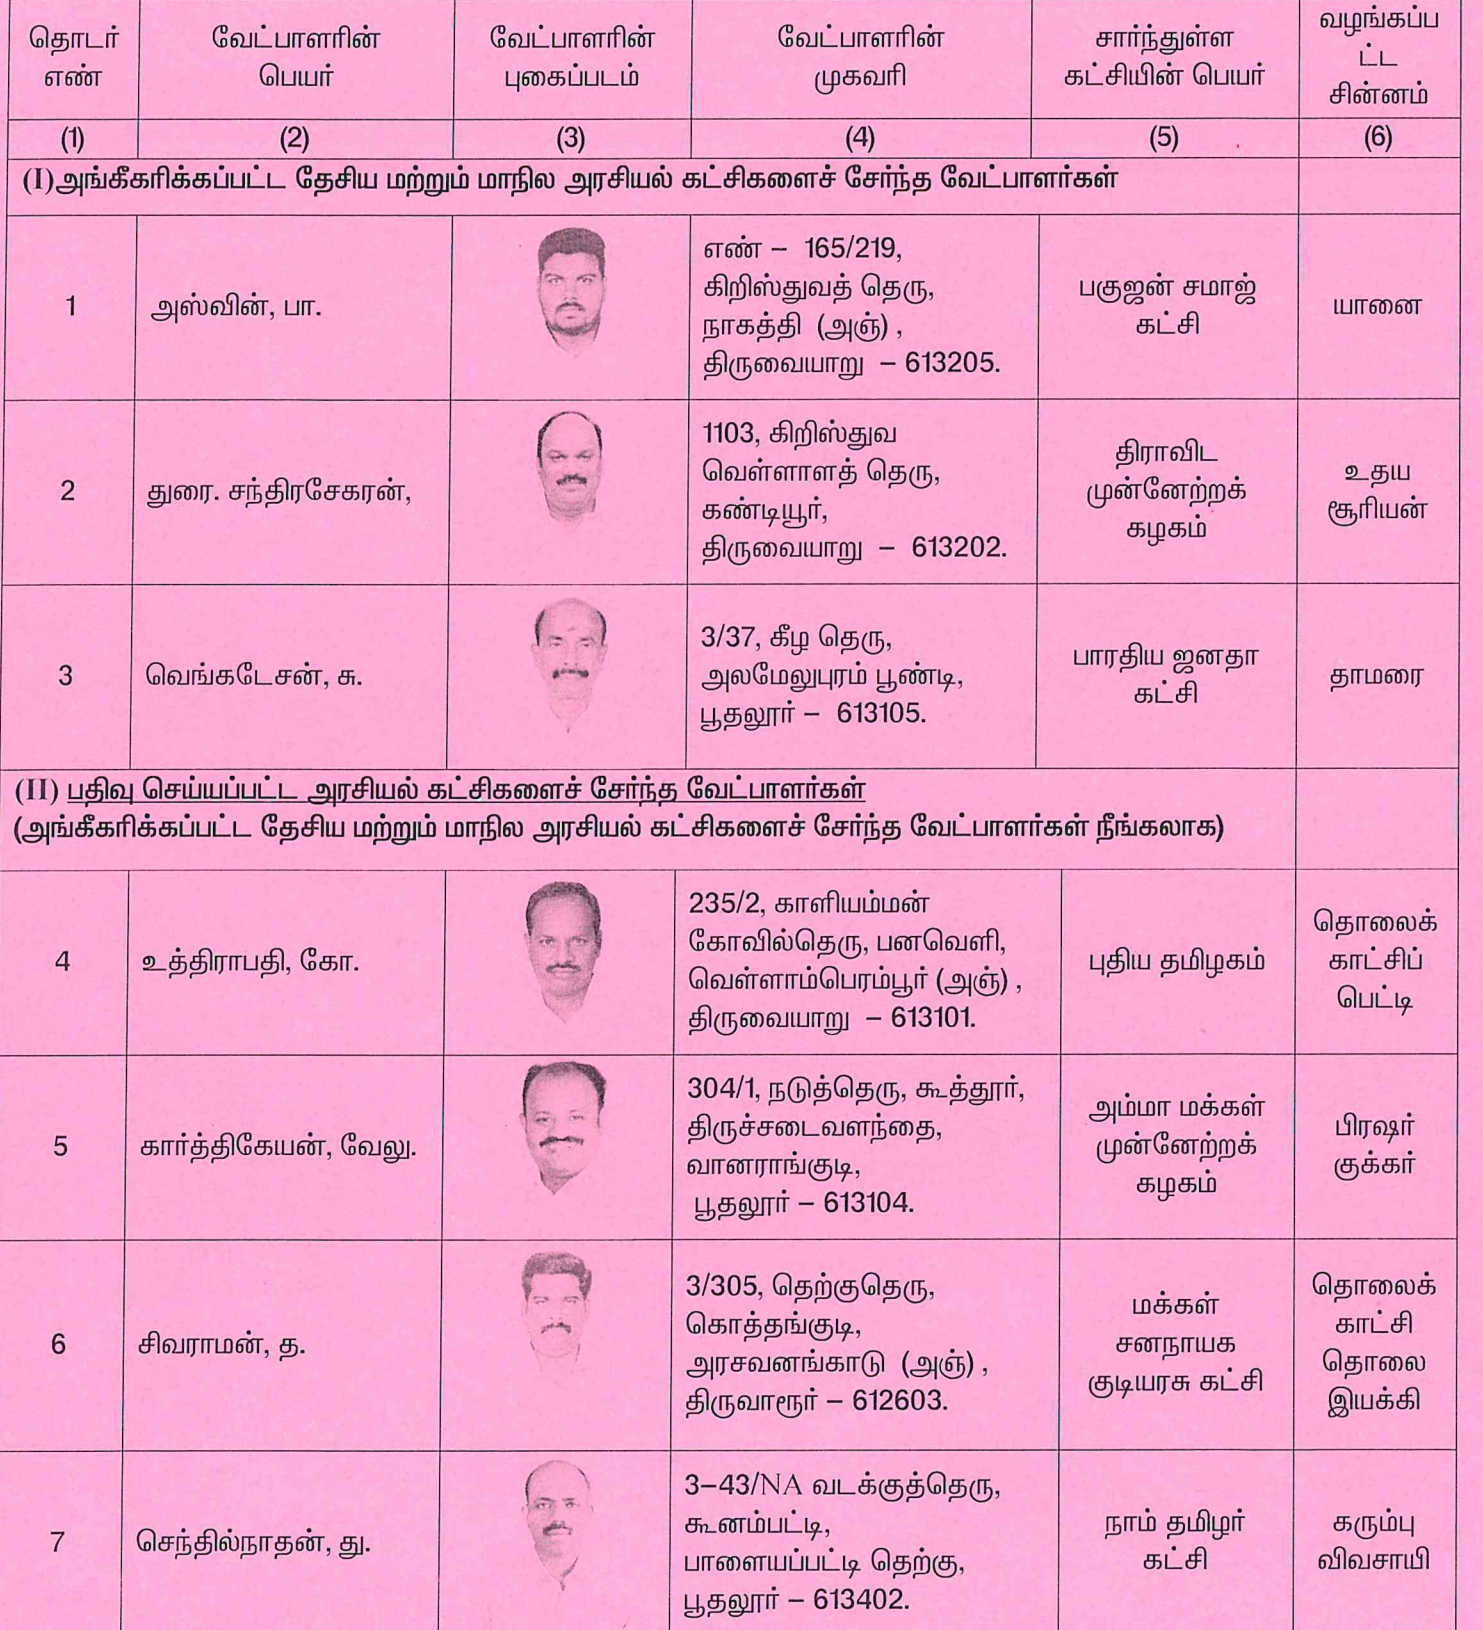 தொடர்
எண்
வேட்பாளரின்
பெயர்
வேட்பாளரின்
புகைப்படம்
வேட்பாளரின்
முகவரி
சார்ந்துள்ள
கட்சியின் பெயர்
வழங்கப்ப
ட்ட
சின்னம்
(1)
(2)
(3)
(4)
(5)
(6)
(I)அங்கீகரிக்கப்பட்ட தேசிய மற்றும் மாநில அரசியல் கட்சிகளைச் சேர்ந்த வேட்பாளர்கள்
1
அஸ்வின், பா.
எண் – 165/219,
கிறிஸ்துவத் தெரு,
நாகத்தி (அஞ்) ,
திருவையாறு – 613205.
பகுஜன் சமாஜ்
கட்சி
யானை
2
துரை. சந்திரசேகரன்,
1103, கிறிஸ்துவ
வெள்ளாளத் தெரு,
கண்டியூர்,
திருவையாறு – 613202.
திராவிட
முன்னேற்றக்
கழகம்
உதய
சூரியன்
3
வெங்கடேசன், சு.
3/37, கீழ தெரு,
அலமேலுபுரம் பூண்டி,
பூதலூர் – 613105.
பாரதிய ஜனதா
கட்சி
தாமரை
(II) பதிவு செய்யப்பட்ட அரசியல் கட்சிகளைச் சேர்ந்த வேட்பாளர்கள்
(அங்கீகரிக்கப்பட்ட தேசிய மற்றும் மாநில அரசியல் கட்சிகளைச் சேர்ந்த வேட்பாளர்கள் நீங்கலாக)
4
உத்திராபதி, கோ.
235/2, காளியம்மன்
கோவில்தெரு, பனவெளி,
வெள்ளாம்பெரம்பூர் (அஞ்) ,
திருவையாறு – 613101.
புதிய தமிழகம்
தொலைக்
காட்சிப்
பெட்டி
5
கார்த்திகேயன், வேலு.
304/1, நடுத்தெரு, கூத்தூர்,
திருச்சடைவளந்தை,
வானராங்குடி,
பூதலூர் – 613104.
அம்மா மக்கள்
முன்னேற்றக்
கழகம்
பிரஷர்
குக்கர்
6
சிவராமன், த.
3/305, தெற்குதெரு,
கொத்தங்குடி,
அரசவனங்காடு (அஞ்) ,
திருவாரூர் – 612603.
மக்கள்
சனநாயக
குடியரசு கட்சி
தொலைக்
காட்சி
தொலை
இயக்கி
7
செந்தில்நாதன், து.
3–43/NA வடக்குத்தெரு,
கூனம்பட்டி,
பாளையப்பட்டி தெற்கு,
பூதலூர் – 613402.
நாம் தமிழர்
கட்சி
கரும்பு
விவசாயி